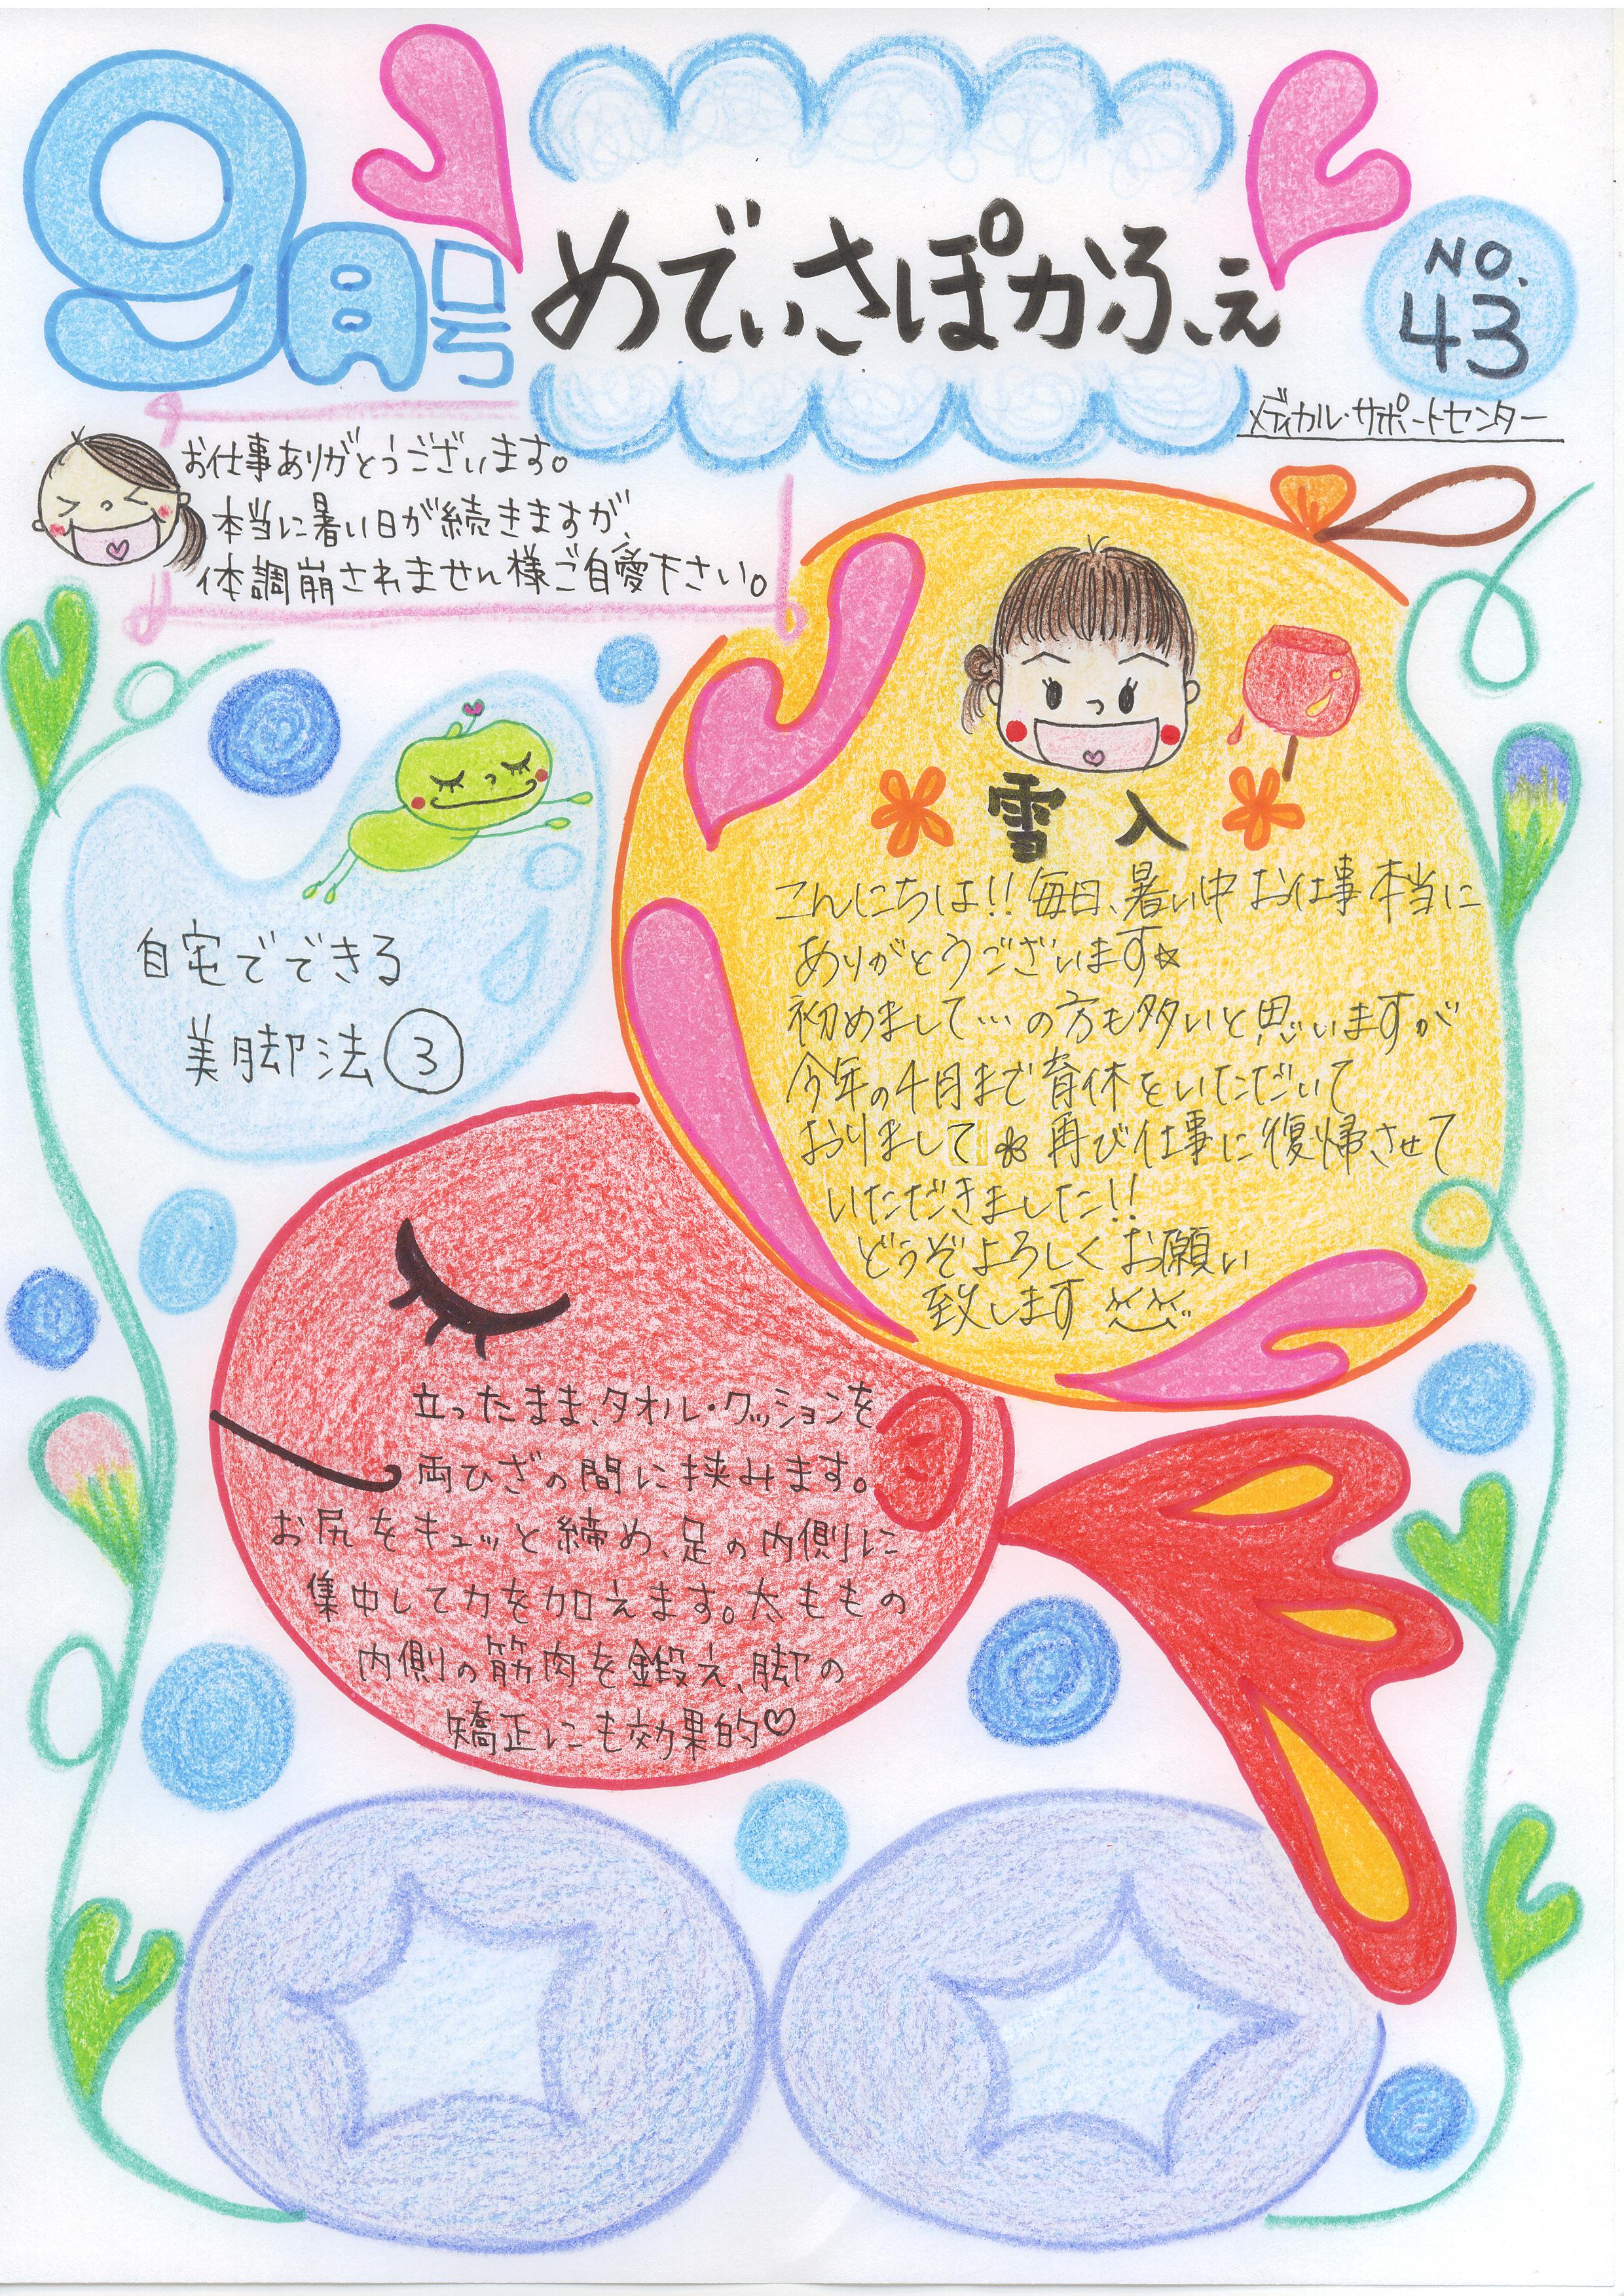 9月号
めでぃさぽかふぇ
NO.
43
メディカル・サポートセンター
お仕事ありがとうございます。
本当に暑い日が続きますが、
体調崩されません様ご自愛下さい。
雪入
こんにちは!!毎日、暑い中お仕事本当に
ありがとうございます☆
初めまして…の方も多いと思いますが
今年の4月まで育休をいただいて
おりまして 再び仕事に復帰させて
いただきました!!
どうぞよろしくお願い
致します
自宅でできる
美脚法③
立ったまま、タオル・クッションを
両ひざの間に挟みます。
お尻をキュッと締め、足の内側に
集中して力を加えます。太ももの
内側の筋肉を鍛え、脚の
矯正にも効果的♡